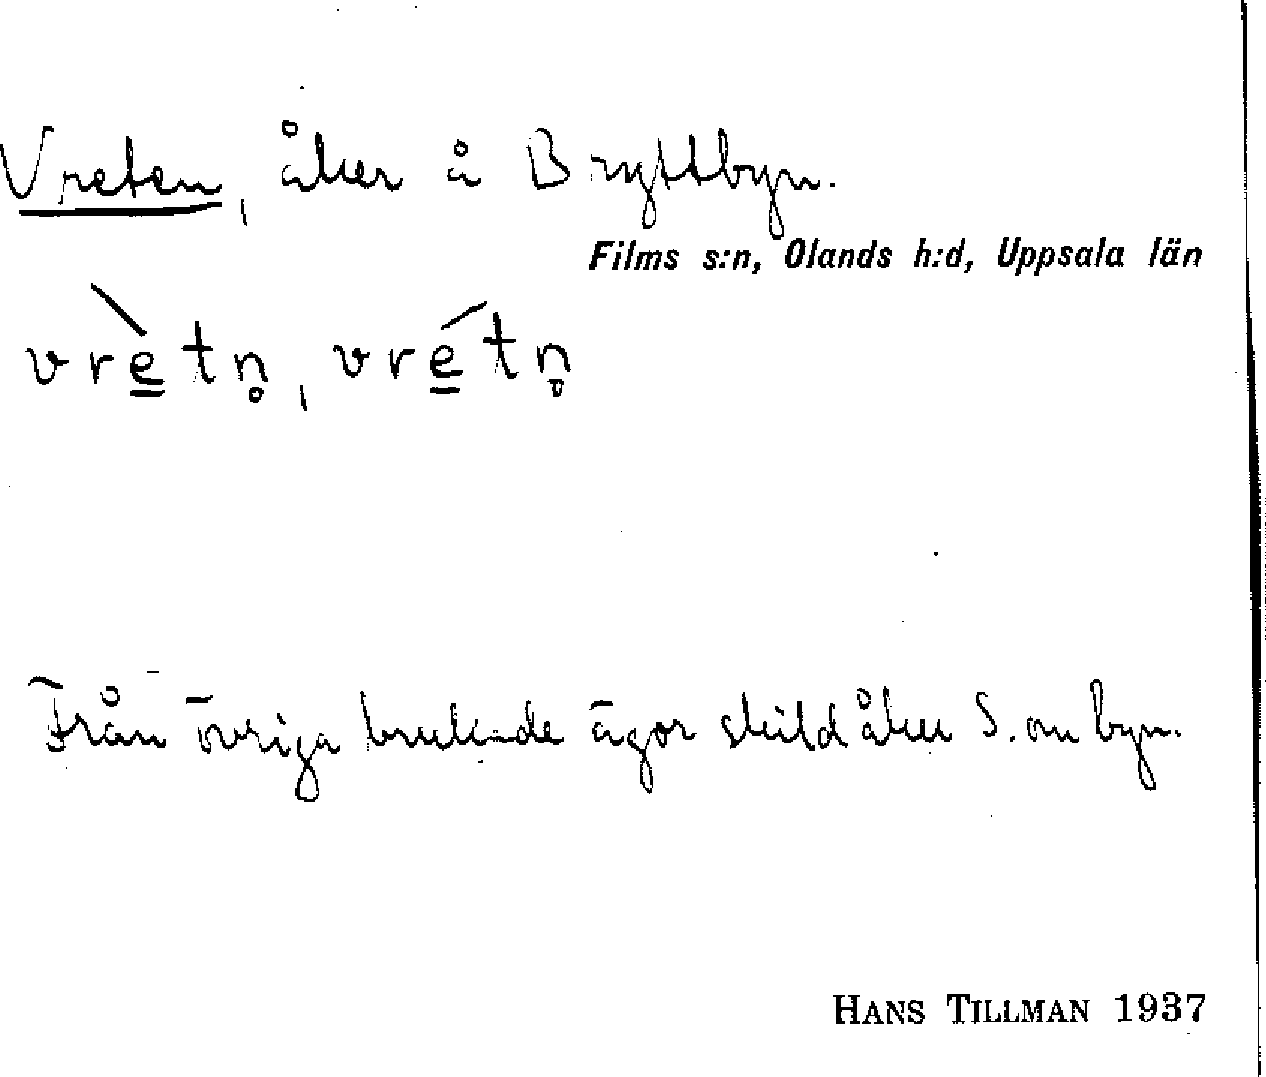 Vreten, åker å Bryttbyn.
Films s:n, Olands h:d, Uppsala län
vrètn̥, vrétn̥
Från övriga brukade ägor skild åker S. om byn.
HANS TILLMAN 1937